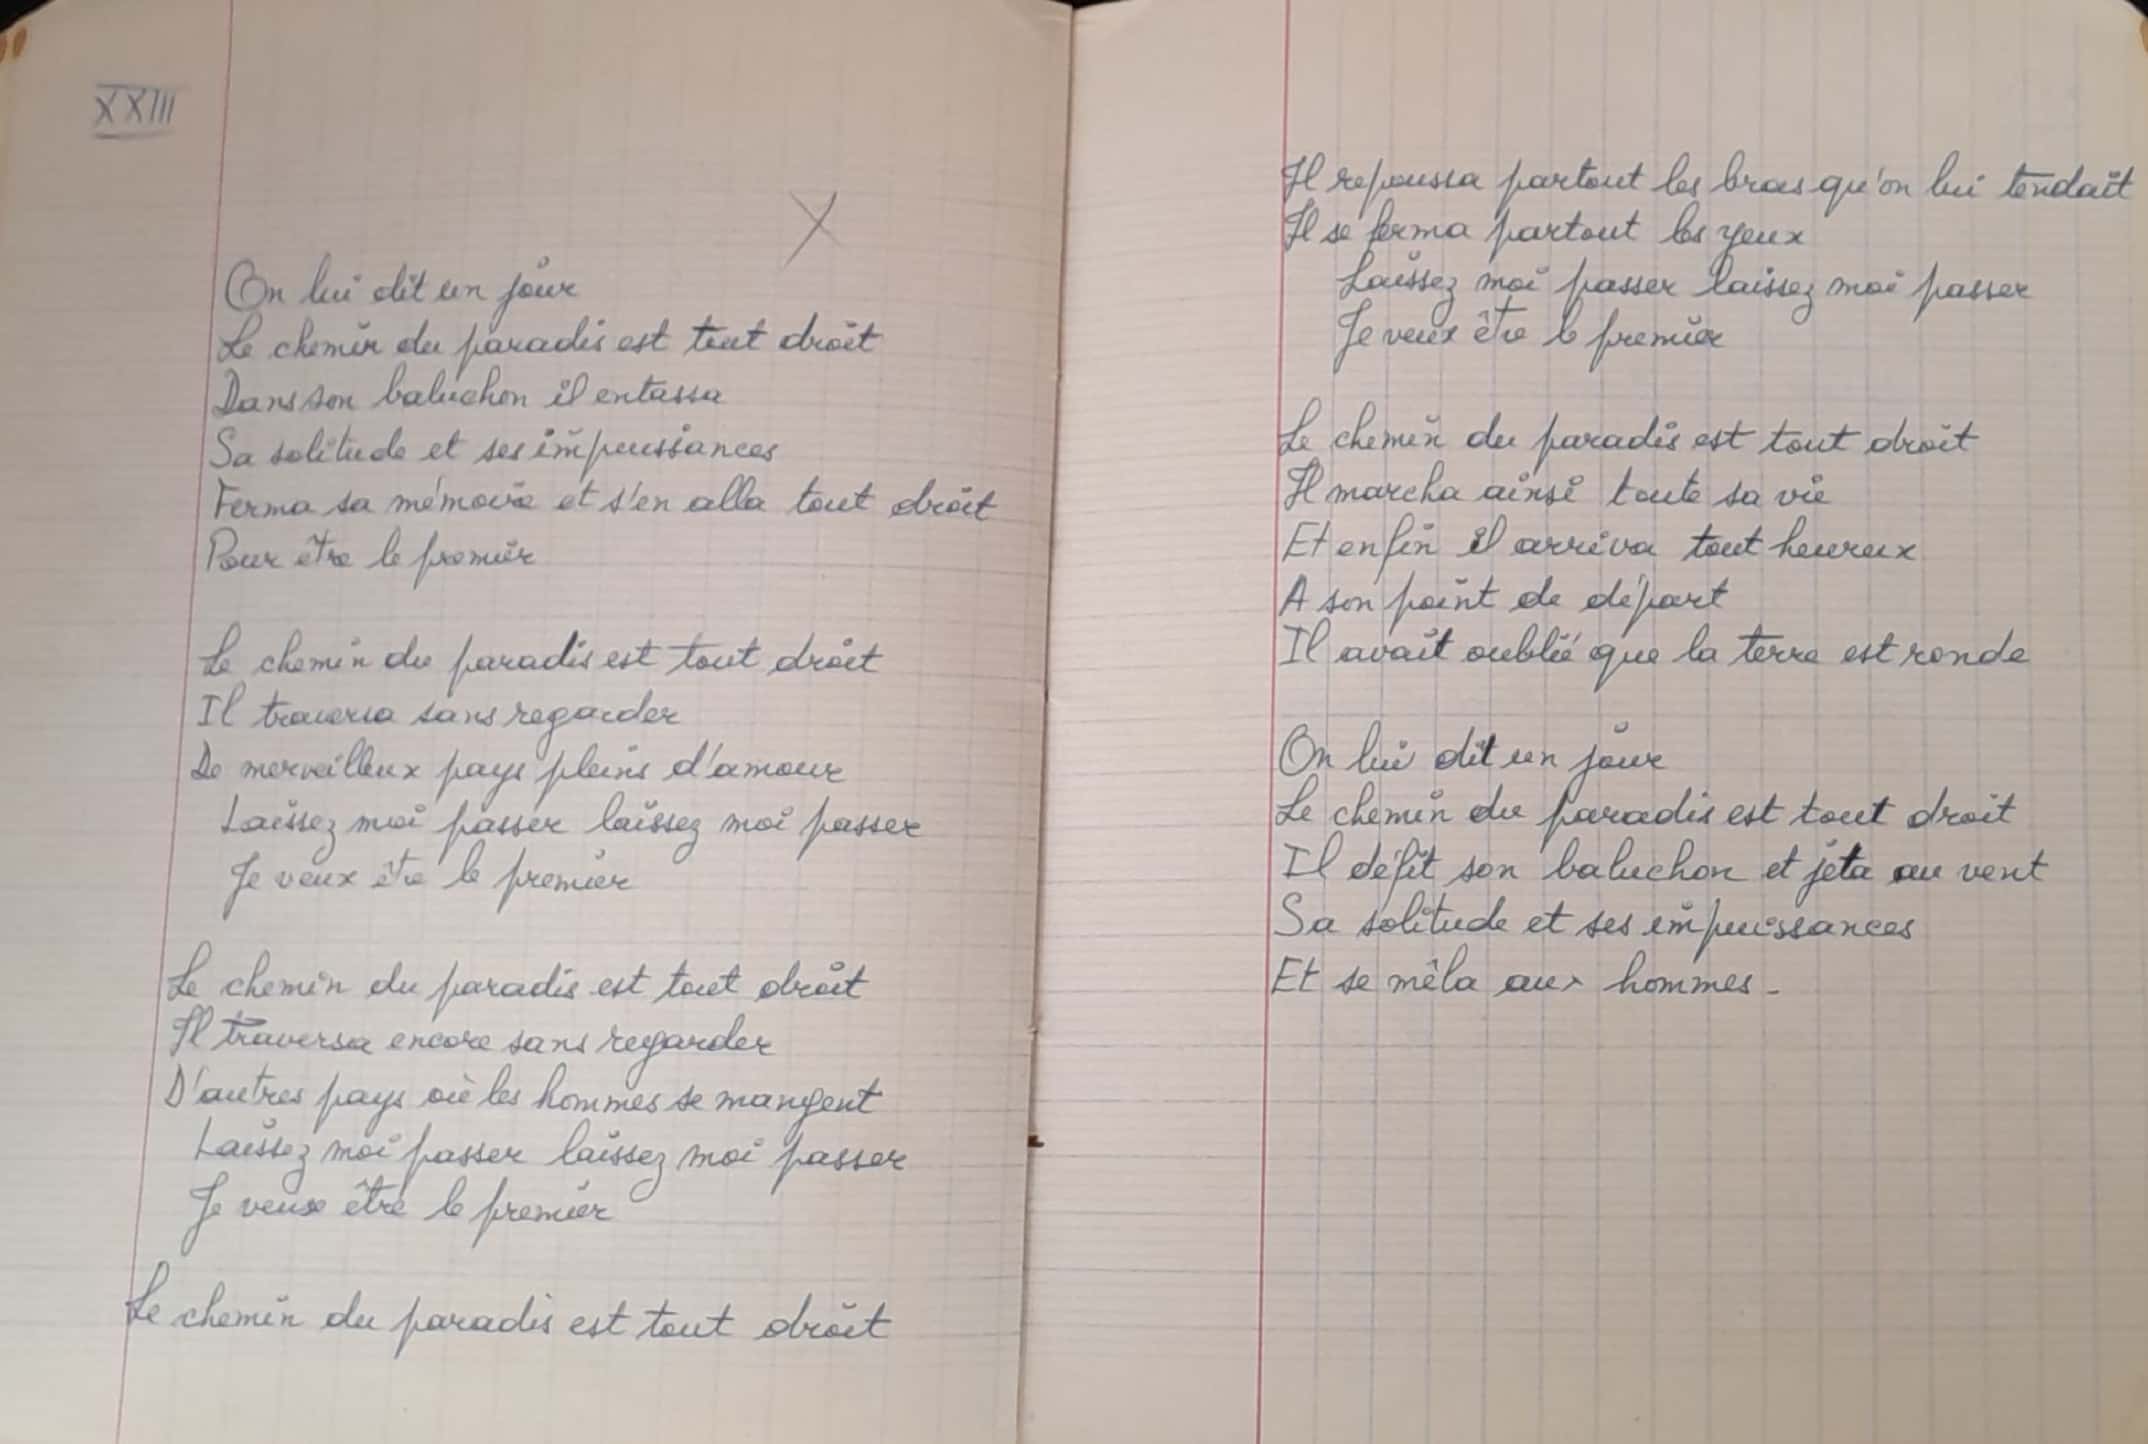 XXIII
X
On lui dit un jour
Le chemin du paradis est tout droit
Dans son baluchon il entassa
Sa solitude et ses impuissances
Ferma sa mémoire et s'en alla tout droit
Pour être le premier
Le chemin du paradis est tout droit
Il traversa sans regarder
De merveilleux pays pleins d'amour
Laissez moi passer laissez moi passer
Je veux être le premier
Le chemin du paradis est tout droit
Il traversa encore sans regarder
D'autres pays où les hommes se mangent
Laissez moi passer laissez moi passer
Je veux être le premier
Le chemin du paradis est tout droit
Il repoussa partout les bras qu'on lui tendait
Il se ferma partout les yeux
Laissez moi passer laissez moi passer
Je veux être le premier
Le chemin du paradis est tout droit
Il marcha ainsi toute sa vie
Et enfin il arriva tout heureux
A son point de départ
Il avait oublié que la terre est ronde
On lui dit un jour
Le chemin du paradis est tout droit
Il défit son baluchon et jeta au vent
Sa solitude et ses impuissances
Et se mêla aux hommes -